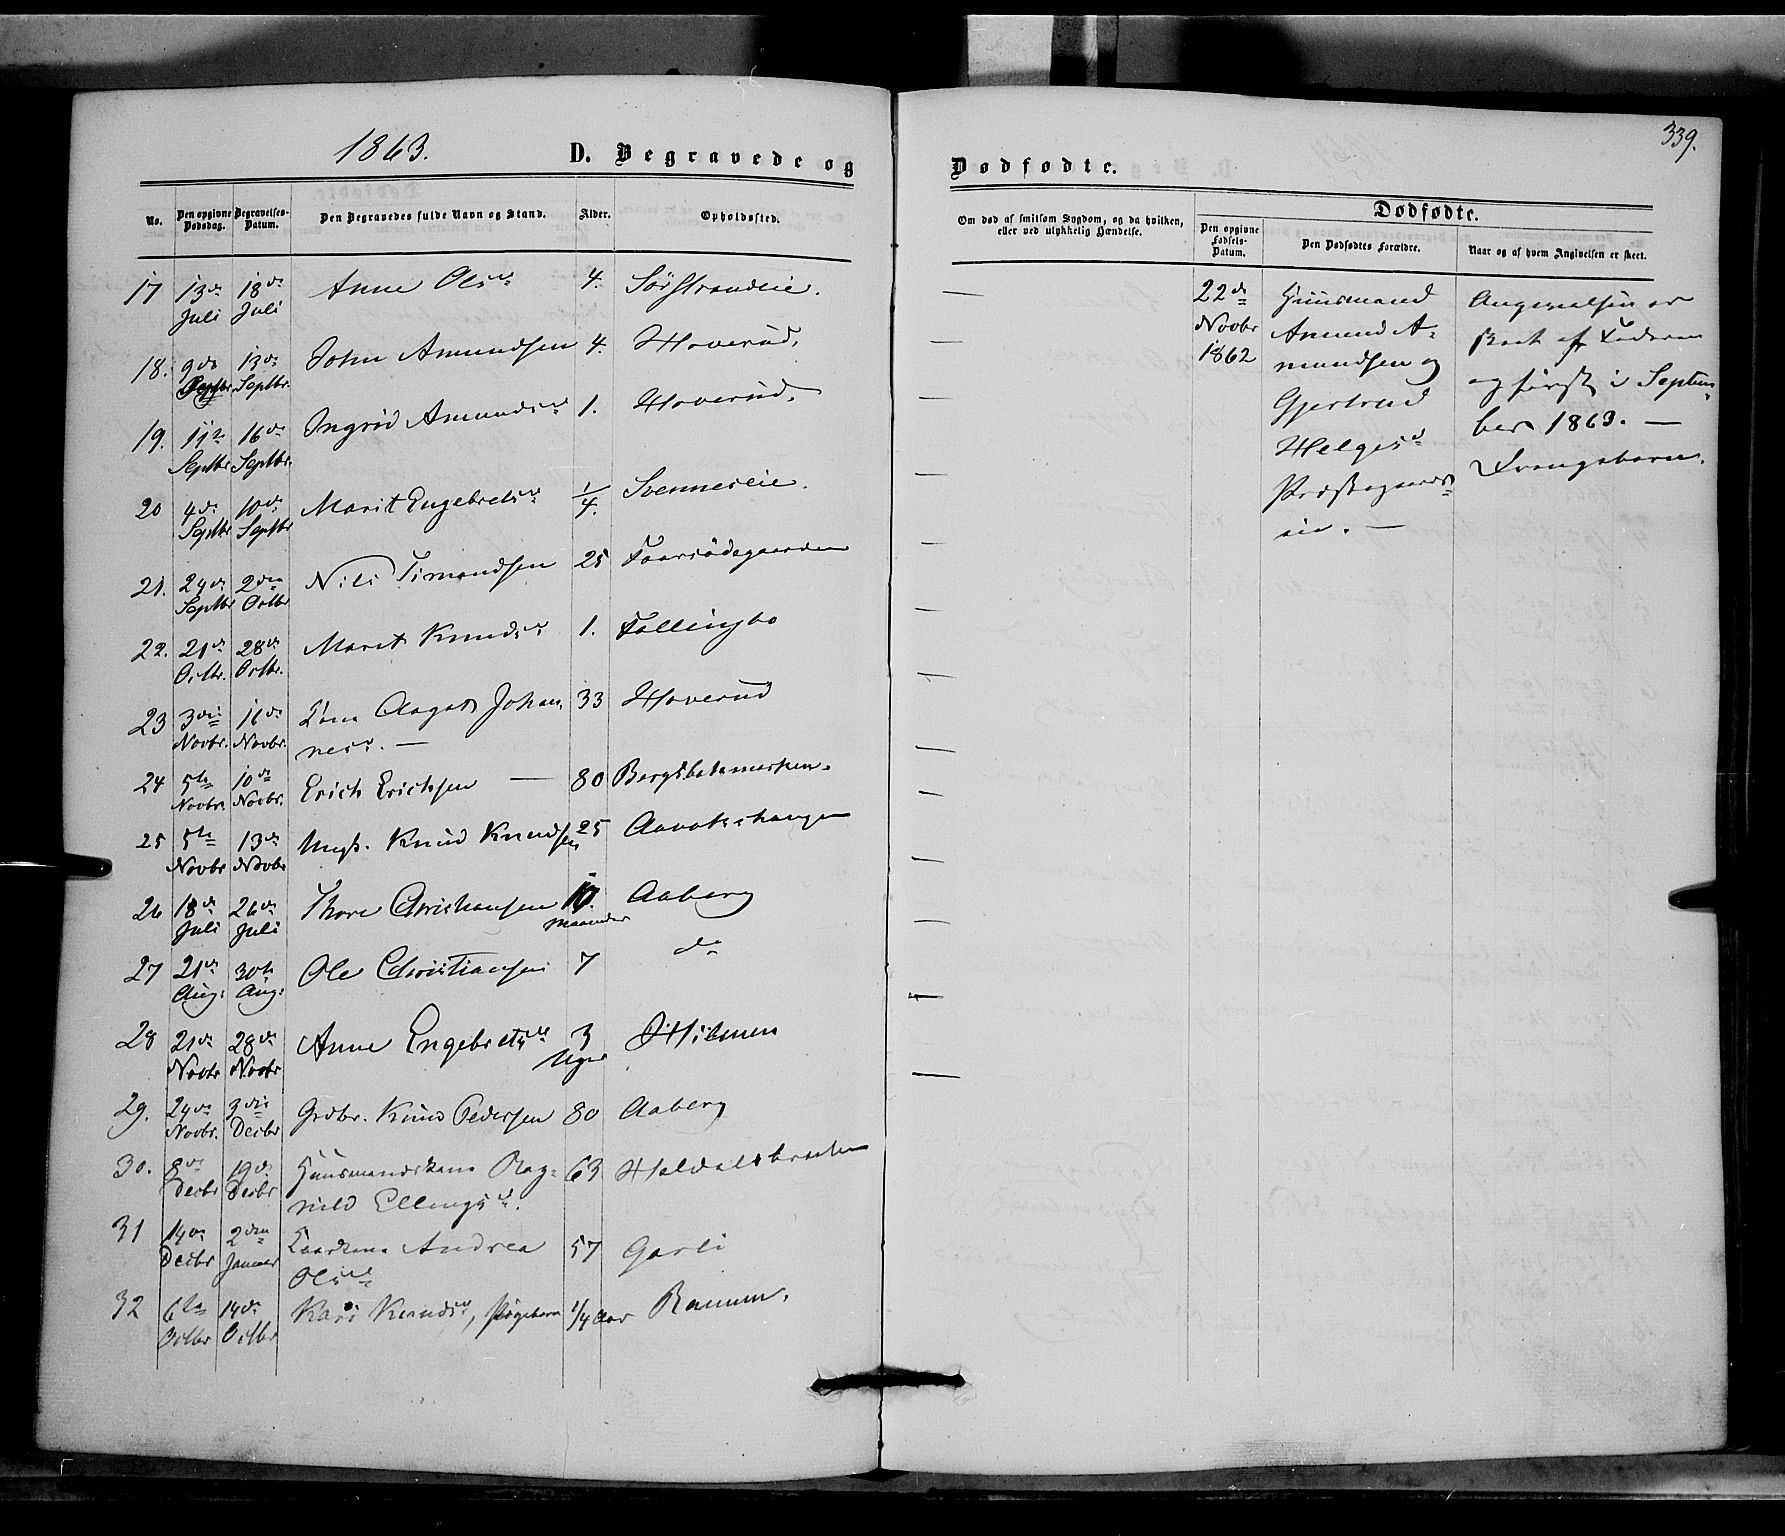 1863.
D. Begravede og
No.
Den opgivne Dødsdag.
Begravelses-Datum.
Den Begravedes fulde Navn og Stand.
Alder.
Opholdssted.
17 13de Juli 18de Juli Anne Olsd 4. Sørstrandeie.
18. 9de Septbr. 13de Septbr. John Amundsen 4. Hoverud.
19. 11te Septbr 16de Septbr. Ingrid Amundsd 1. Hoverud.
20 4de Septbr 10de Septbr Marit Engebretsd 1/4. Svenneseie.
21. 24de Septbr 2den Octbr Nils Simondsen 25
22. 21de Octbr. 28de Octbr. Marit Knudsd 1. Fallingbo
23 3die Novbr. 11de Novbr. Aagot Johan-
nesd. — 33 Hoverud
24 5te Novbr. 10de Novbr. Erich Erichsen — 80
25 5te Novbr 13de Novbr Ungk. Knud Knudsen 25
26 18de Juli 26de Juli Thore Christiansen 10. Maaneder Aaberg
27 21de Aug: 30te Aug: Ole Christiansen 7 do
28 21de Novbr 28de Novbr Anne Engebretsd 3 Uger Hilmen
29. 24de Novbr. 3die Decbr Grdbr. Knud Pedersen 80 Aaberg
30. 8de Decbr 19de Decbr Huusmandskone Rag-
nild Ellingsd. 63
31 14de Decbr 2den Januar Andrea
Olsd 57 Garli
32 6te Octbr 14de Octbr Kari Knudsd, Pigebarn 1/4 Aar
339.
Dødfødte.
Om død af smitsom Sygdom, og da hvilken,
eller ved ulykkelig Hændelse.
Dødfødte.
Den opgivne Fødsels-Datum.
Den Dødfødtes Forældre.
Naar og af hvem Angivelsen er skeet.
22de
Novbr
1862
Huusmand
Amund A-
mundsen og
Gjertrud
Helgesd
Præstegaards-
eie. —
Angivelsen er
skeet af Faderen
og først i Septem-
ber 1863. —
Drengebarn.